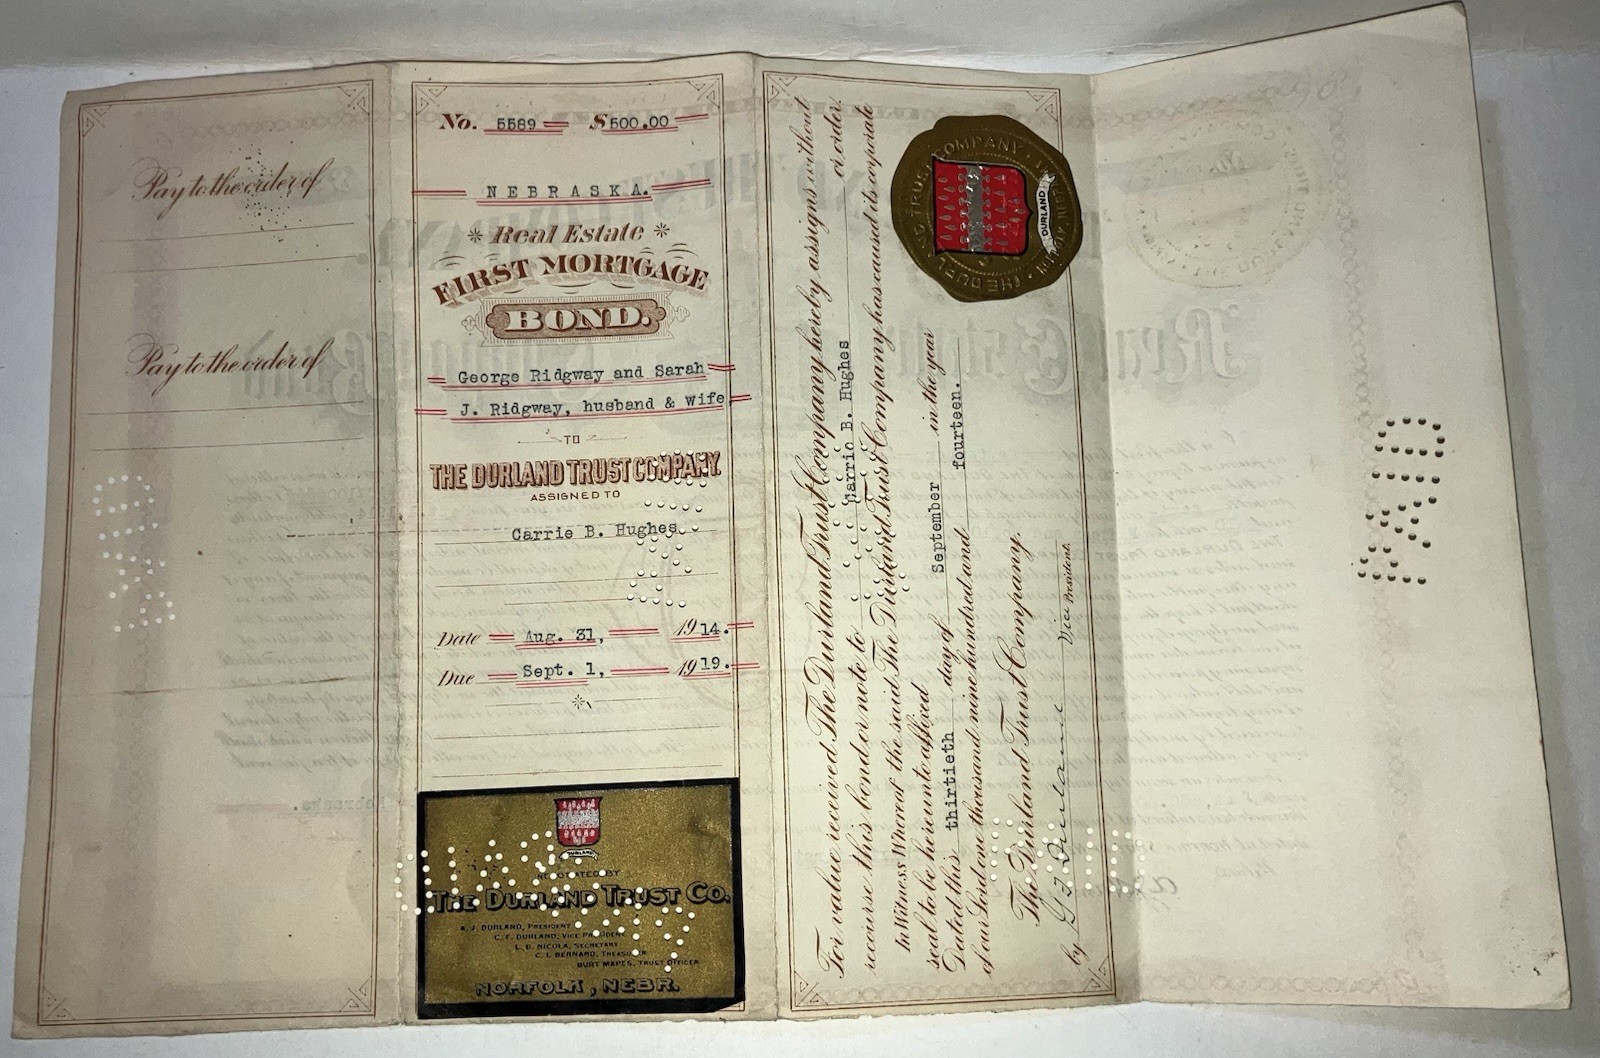 Pay to the order of
Pay to the order of
No. 5589 $500.00
NEBRASKA.
Real Estate
FIRST MORTGAGE
BOND.
George Ridgway and Sarah
J. Ridgway, husband & wife
TO
THE DURLAND TRUST COMPANY.
ASSIGNED TO
Carrie B. Hughes
Date Aug. 31, 1914.
Due Sept. 1, 1919.
DURLAND
NEGOTIATED BY
THE DURLAND TRUST CO.
A. J. DURLAND, PRESIDENT
C. F. DURLAND, VICE PRESIDENT
L. B. NICOLA, SECRETARY
C. I. BERNARD, TREASURER
BURT MAPES, TRUST OFFICER
NORFOLK, NEBR.
For value received The Durland Trust Company hereby assigns without
recourse this bond or note to Carrie B. Hughes or order.
In Witness Whereof the said The Durland Trust Company has caused its corporate
seal to be hereunto affixed
Dated this thirtieth day of September in the year
of our Lord one thousand nine hundred and fourteen.
The Durland Trust Company.
by G. F. Durland Vice President.
THE DURLAND TRUST COMPANY
DURLAND
PAID